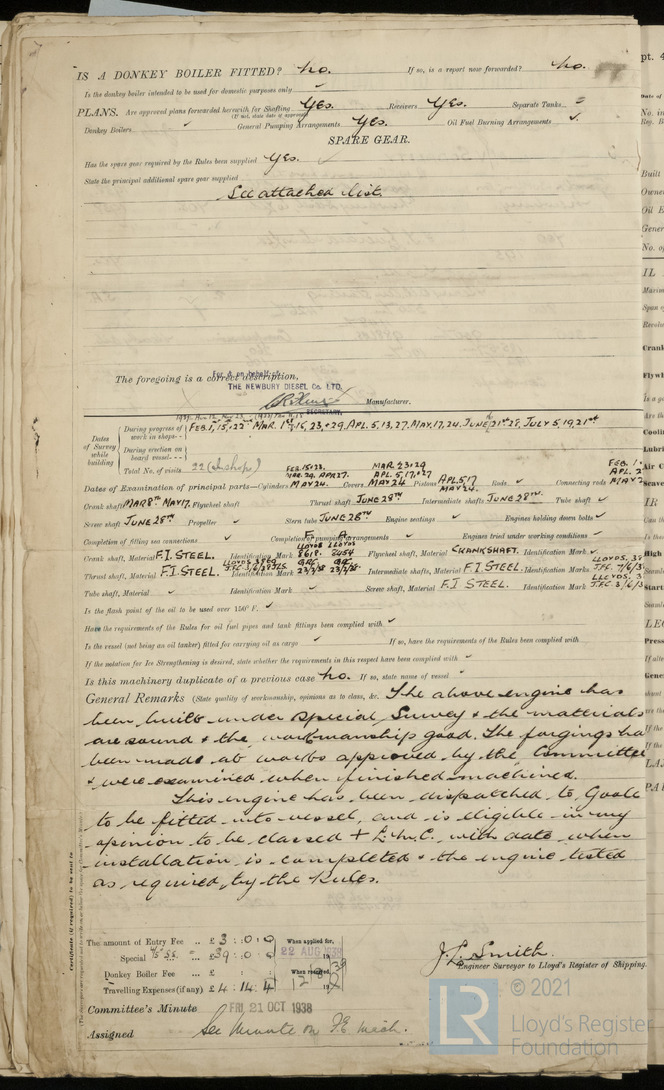 IS A DONKEY BOILER FITTED? No. If so, is a report now forwarded? No.
Is the donkey boiler intended to be used for domestic purposes only
PLANS. Are approved plans forwarded herewith for Shafting Yes. Receivers Yes. Separate Tanks
(If not, state date of approval)
Donkey Boilers General Pumping Arrangements Yes. Oil Fuel Burning Arrangements
SPARE GEAR.
Has the spare gear required by the Rules been supplied Yes.
State the principal additional spare gear supplied
See attached list.
The foregoing is a correct description,
For & on behalf of
THE NEWBURY DIESEL Co. LTD.
SECRETARY. Manufacturer.
Dates of Survey while building
During progress of work in shops FEB. 1, 15, 22 MAR. 1st 16, 23, 29, APL. 5, 13, 27, MAY. 17, 24. JUNE 21st 28, JULY 5, 19, 21st
During erection on board vessel
Total No. of visits 22 (in shop)
Dates of Examination of principal parts—Cylinders FEB. 15, 23, MAR. 29, APR 27. MAY 24. Covers MAR. 23, 29 APL. 5, 17, 27 MAY 24 Pistons APL. 5, 17 MAY 24. Rods Connecting rods
Crank shaft MAR 8TH MAY 17. Flywheel shaft Thrust shaft JUNE 28TH Intermediate shafts JUNE 28TH. Tube shaft
Screw shaft JUNE 28TH Propeller Stern tube JUNE 28TH Engine seatings Engines holding down bolts
Completion of fitting sea connections Completion of pumping arrangements Engines tried under working conditions
Crank shaft, Material F.I. STEEL. Identification Mark LLOYDS LLOYDS Flywheel shaft, Material CRANKSHAFT. Identification Mark
Thrust shaft, Material F.I. STEEL. Identification Mark Intermediate shafts, Material F.I STEEL. Identification Marks
Tube shaft, Material Identification Mark Screw shaft, Material F.I STEEL. Identification Mark
Is the flash point of the oil to be used over 150° F.
Have the requirements of the Rules for oil fuel pipes and tank fittings been complied with
Is the vessel (not being an oil tanker) fitted for carrying oil as cargo If so, have the requirements of the Rules been complied with
If the notation for Ice Strengthening is desired, state whether the requirements in this respect have been complied with
Is this machinery duplicate of a previous case No. If so, state name of vessel
General Remarks (State quality of workmanship, opinions as to class, &c. The above engine has
been built under Special Survey & the materials
are sound & the workmanship good. The forgings ha
been made at works approved by the Committee
& were examined when finished machined.
This engine has been dispatched to Goole
to be fitted into vessel, and is eligible in my
opinion to be classed + L.M.C. with date when
installation is completed & the engine tested
as required by the Rules.
Certificate (if required) to be sent to
The amount of Entry Fee .. £ 3 : 0 : 0 When applied for,
Special £39 : 0 : 0 22 AUG 1938
Donkey Boiler Fee £ : : When received,
Travelling Expenses (if any) £ 4 : 14 : 4
J.L. Smith.
Engineer Surveyor to Lloyd's Register of Shipping.
Committee's Minute FRI. 21 OCT 1938
Assigned See Minute on F.E. Mach.
© 2021
LR Lloyd's Register
Foundation